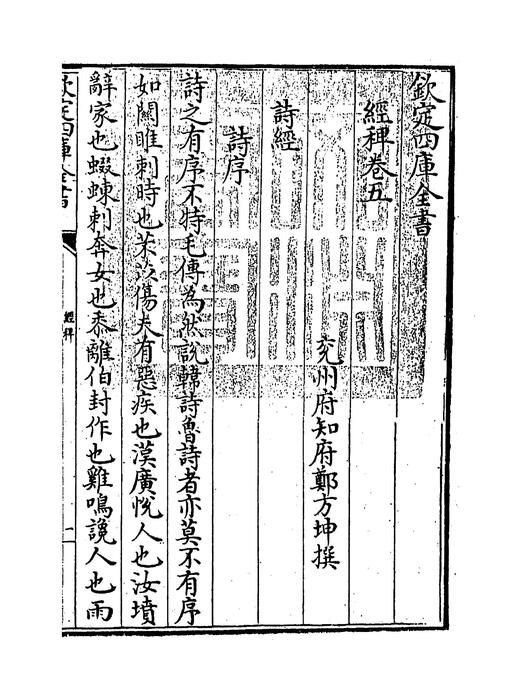 欽定四庫全書
經稗卷五
兖州府知府鄭方坤撰
詩經
詩序
詩之有序不特毛傳為然說韓詩魯詩者亦莫不有序
如關雎刺時也芣苢傷夫有惡疾也漢廣悅人也汝墳
辭家也蝃蝀刺奔女也黍離伯封作也雞鳴讒人也雨
欽定四庫全書
經稗
一